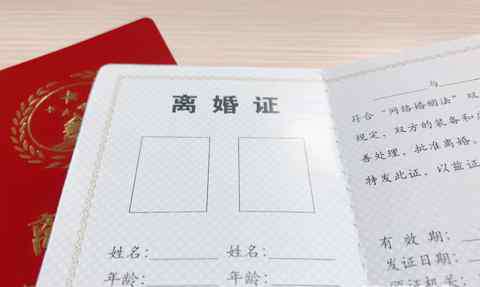 离婚证
姓名:________ 姓名:________
年龄:________ 年龄:________
________与________
符合“网络婚姻法”双
规定，双方的装备和
善处理，批准离婚。
特发此证，以兹证
有 效 期:
发证日期:
证机关: